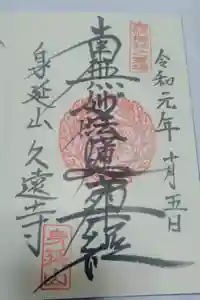 令和元年十月五日
南無妙法蓮華経
身延山久遠寺
身延山